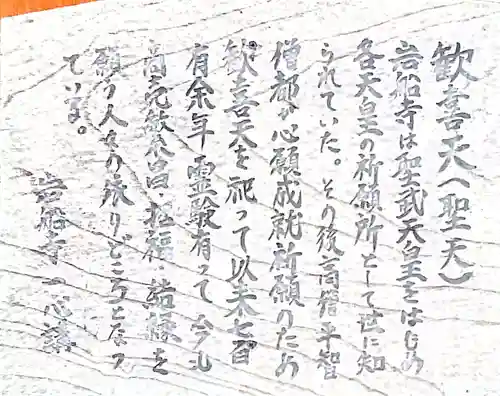 歓喜天(聖天)
岩船寺は聖武天皇をはじめ
各天皇の祈願所として世に知
られていた。その後高階平智
僧都が心願成就祈願のため
歓喜天を祀って以来七百
有余年霊験有って今も
商売繁昌・招福・結縁を
願う人々の拠りどころとなっ
ている。
岩船寺一心講